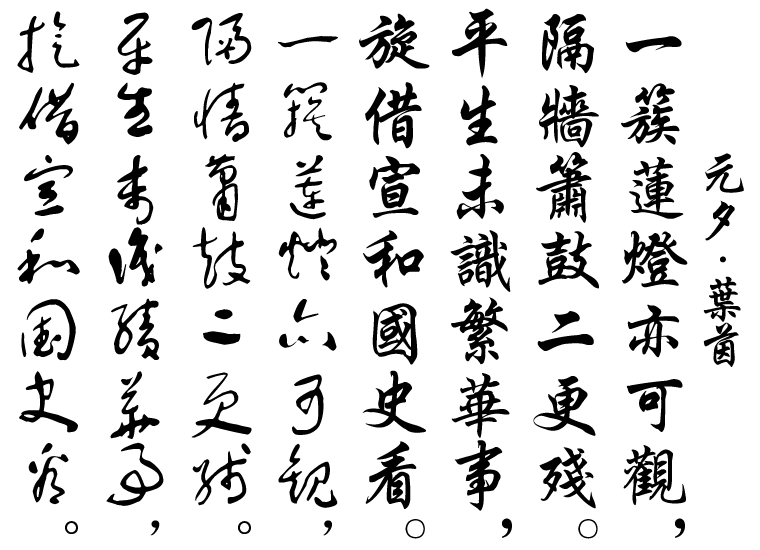 元夕·葉茵
一簇蓮燈亦可觀，
隔牆簫鼓二更殘。
平生未識繁華事，
旋借宣和國史看。
一簇蓮燈亦可觀，
隔牆簫鼓二更殘。
平生未識繁華事，
旋借宣和國史看。